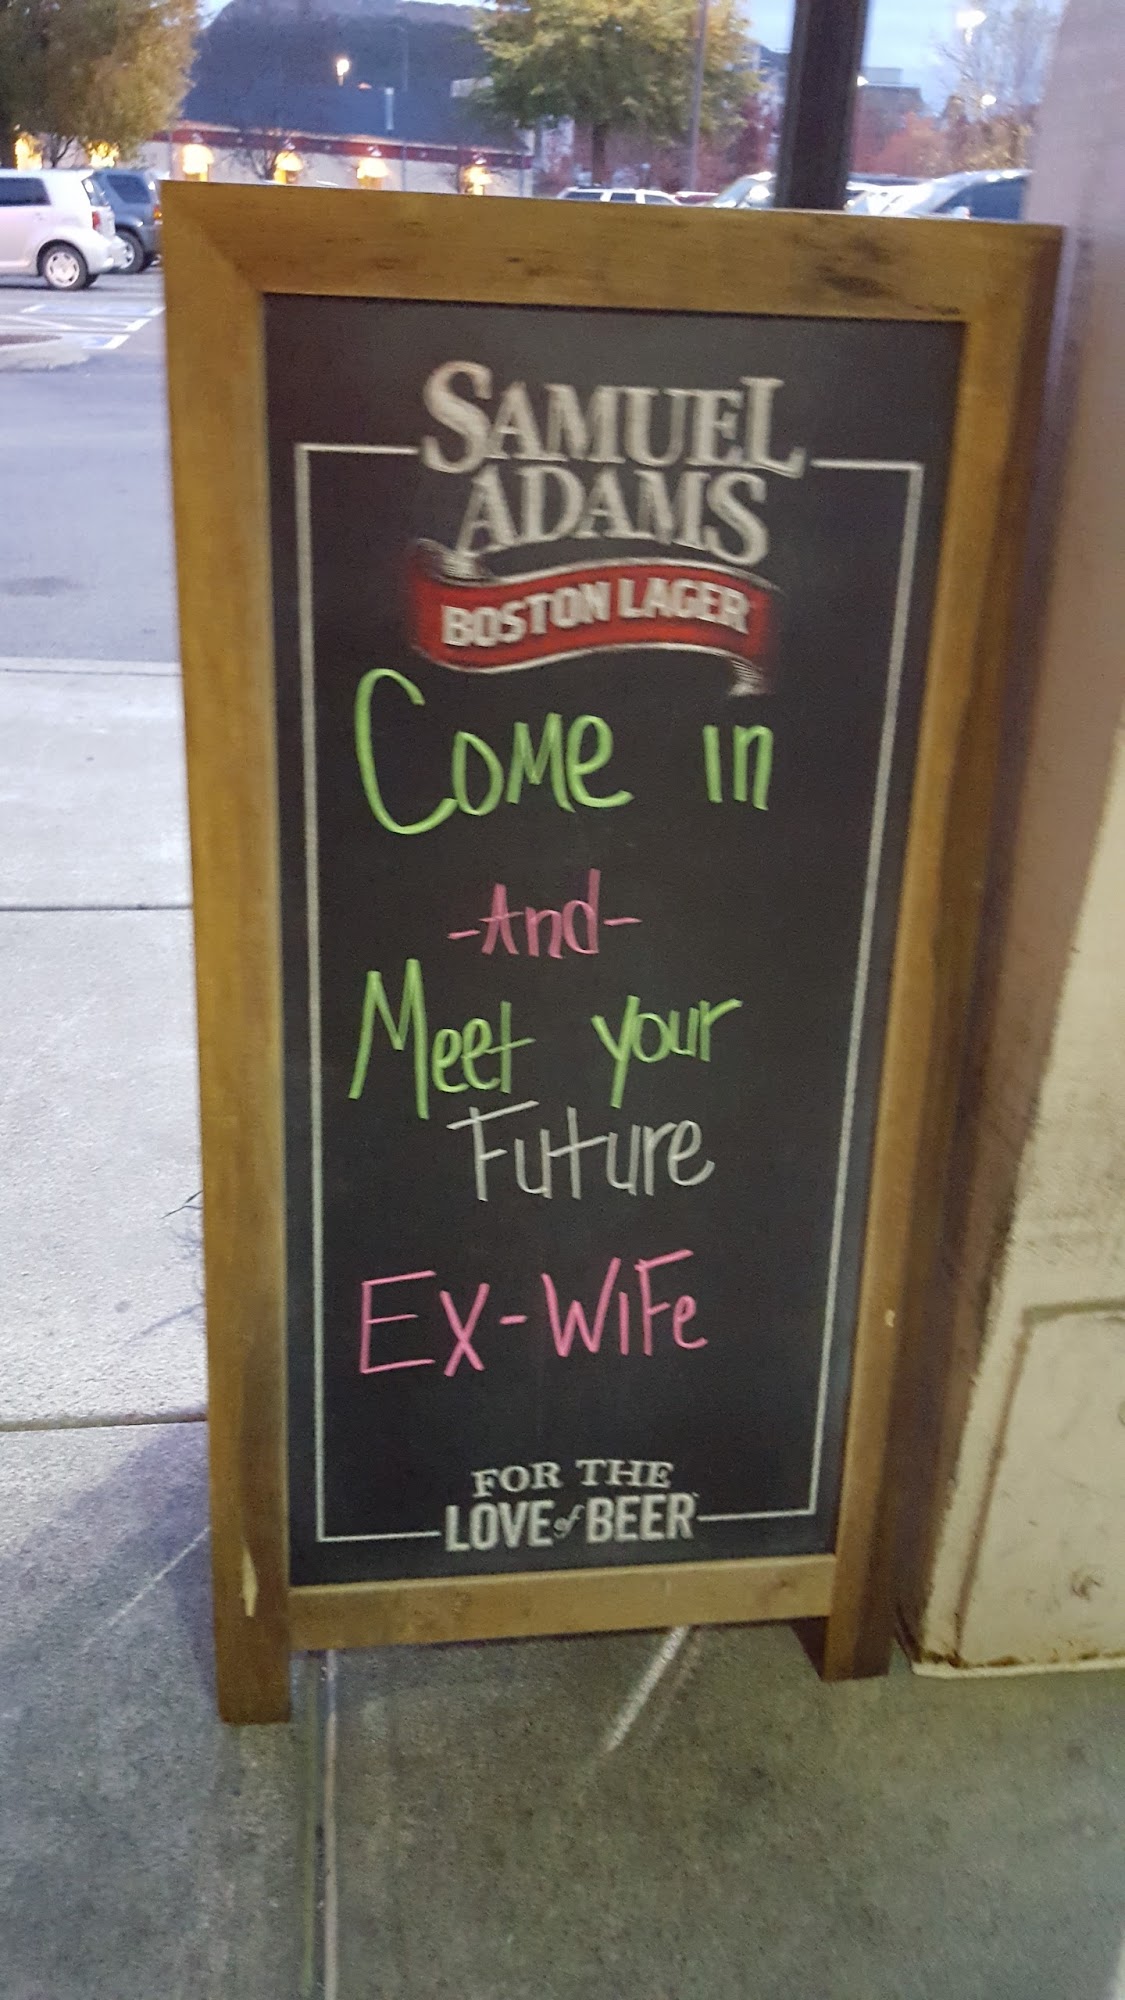 SAMUEL
ADAMS
BOSTON LAGER
Come in
-And-
Meet your
Future
Ex-Wife
FOR THE
LOVE of BEER